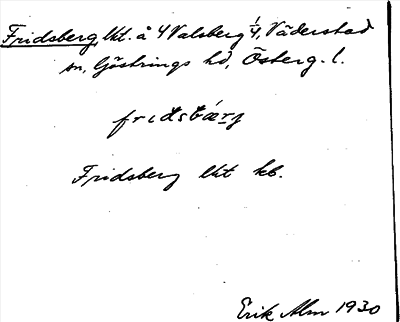 Fridsberg, lht. å 4 Valsberg 1/4, Väderstad
sn, Göstrings hd, Österg. l.
fridsbærj
Fridsberg lht kb.
Erik Alm 1930